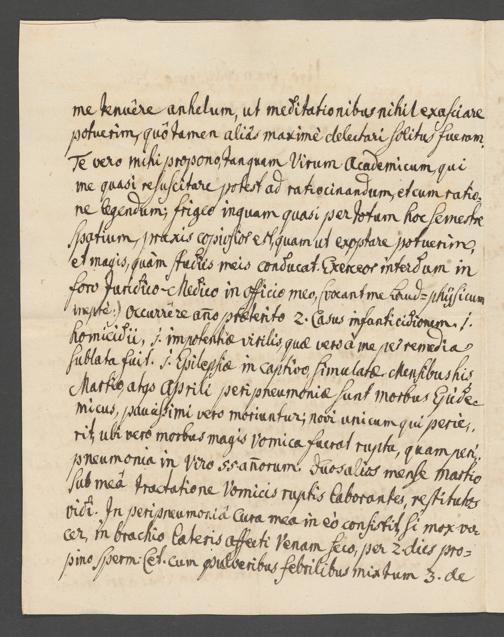 me tenuêre anhelum, ut meditationibus nihil exasciare
potuerim, quô tamen aliàs maximè delectari solitus fueram.
Te vero mihi propono tanquam Virum Academicum, qui
me quasi resuscitare potest ad ratiocinandum, et cum ratio-
ne legendum; frigeo inquam quasi per totum hoc semestre
spatium, praxis copiosior est, quam ut exoptare potuerim,
et magis, quàm studiis meis conducat. Exerceor interdum in
foro Juridico-Medico in officio meo, (vocant me Land-phÿsicum
ineptè.) occurrêre año praeterito 2. Casus infanticidiorum. 1.
homicidii, 1. impotentiae virilis, quae verè à me per remedia
sublata fuit. 1. Epilepsiae in captivo, simulatae. Mensibus his
Martio, atqs Aprili peripneumoniae sunt morbus Epide-
micus, paucissimi vero moriuntur; novi unicum qui perie-
rit, ubi verò morbus magis Vomica fuerat rupta, quam peri-
pneumonia in Viro 55 añorum. Duos alios mense Martio
sub meâ tractatione Vomicis ruptis laborantes, restitutos
vidi. In peripneumoniâ Cura mea in eò consistit, si mox vo-
cer, in brachio lateris affecti Venam seco, per 2 dies pro-
pino sperm: Cet. cum pulveribus febrilibus mixtum 3. de